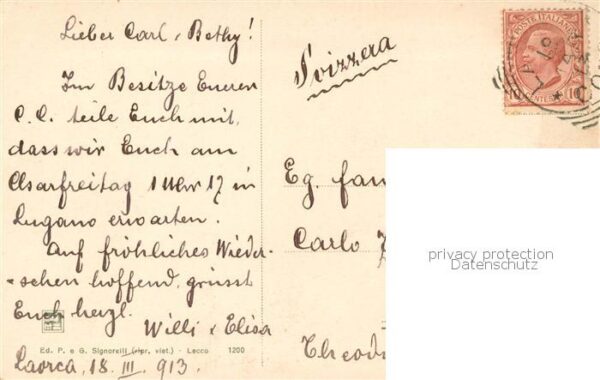 Lieber Carl & Bethy!
Svizzera
POSTE ITALIANE
CENTES. 10
Im Besitze Eueren
C. C. teile Euch mit,
dass wir Euch am
Charfreitag 1 Uhr 17 in
Lugano erwarten.
Auf fröhliches Wieder-
-sehen hoffend, grüsst
Euch herzl.
Willi & Elisa
Eg. fam
Carlo
Theod
privacy protection
Datenschutz
Ed. P. e G. Signorelli (ripr. viet.) - Lecco 1200
Laorca, 18. III. 913.